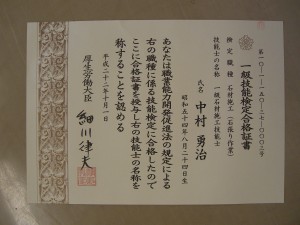 一級技能検定合格証書
検定職種 石材施工(石張り作業)
技能士の名称 一級石材施工技能士
氏名 中村勇治
昭和五十四年八月二十四日生
あなたは職業能力開発促進法の規定による
右の職種に係る技能検定に合格したので
ここに合格証書を授与し右の技能士の名称を
称することを認める
平成二十二年十月一日
厚生労働大臣 細川律夫